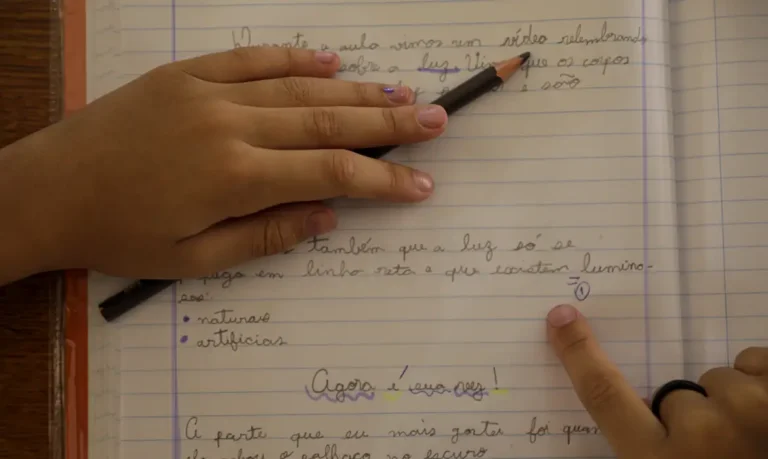 Durante a aula vimos um vídeo relembrando
sobre a luz. que os corpos
e são
também que a luz só se
em linha reta e que existem lumino-
1
• naturais
• artificiais
Agora é sua vez!
A parte que eu mais gostei foi quan
o palhaço no escuro